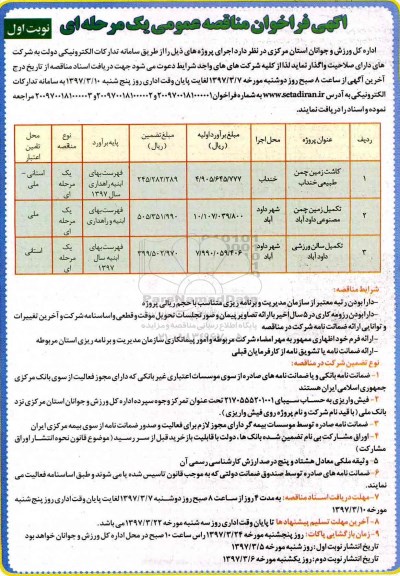 آگهی فراخوان مناقصه عمومی یک مرحله ای
نوبت اول
اداره کل ورزش و جوانان استان مرکزی در نظر دارد اجرای پروژه های ذیل را از طریق سامانه تدارکات الکترونیکی دولت به شرکت
های دارای صلاحیت واگذار نماید لذا از کلیه شرکت های واجد شرایط دعوت می شود جهت دریافت اسناد مناقصه از تاریخ درج
آخرین آگهی از ساعت ۸ صبح روز دوشنبه مورخه ۱۳۹۷/۳/۷ لغایت پایان وقت اداری روز پنج شنبه مورخه ۱۳۹۷/۳/۱۰ به سامانه تدارکات
الکترونیکی به آدرس www.setadiran.ir به شماره فراخوان ۲۰۹۷۰۰۱۸۱۰۰۰۰۰۱ و ۲۰۹۷۰۰۱۸۱۰۰۰۰۰۲ و ۲۰۹۷۰۰۱۸۱۰۰۰۰۰۳ مراجعه
نموده و اسناد را دریافت نمایند.
ردیف عنوان پروژه محل اجرا مبلغ برآورد اولیه (ریال) مبلغ تضمین (ریال) پایه برآورد نوع مناقصه محل تامین اعتبار
۱ کاشت زمین چمن طبیعی خنداب خنداب ۴/۹۰۵/۶۴۵/۷۷۷ ۲۴۵/۲۸۲/۲۸۹ فهرست بهای ابنیه راهداری سال ۱۳۹۷ یک مرحله ای استانی - ملی
۲ تکمیل زمین چمن مصنوعی داود آباد شهر داود آباد ۱۰/۱۰۷/۰۳۹/۸۰۰ ۵۰۵/۳۵۱/۹۹۰ فهرست بهای ابنیه و راهداری یک مرحله ای ملی
۳ تکمیل سالن ورزشی داود آباد شهر داود آباد ۷/۹۹۰/۰۵۹/۴۰۶ ۳۹۹/۵۰۲/۹۷۰ فهرست بهای ابنیه سال ۱۳۹۷ یک مرحله ای استانی
شرایط مناقصه:
-دارا بودن رتبه معتبر از سازمان مدیریت و برنامه ریزی متناسب با حجم ریالی پروژه
-دارا بودن رزومه کاری در ۵ سال اخیر با ارائه تصاویر پیمان و صورتجلسات تحویل موقت و قطعی و اساسنامه شرکت و آخرین تغییرات
و توانایی ارائه ضمانت نامه شرکت در مناقصه
-ارائه فرم خود اظهاری ممهور به مهر امضاء شرکت مربوطه و امور پیمانکاری سازمان مدیریت و برنامه ریزی استان مربوطه
-ارائه ضمانت یا تشویق نامه از کارفرمایان قبلی
نوع تضمین شرکت در مناقصه:
۱- ضمانت نامه بانکی و یا ضمانت نامه های صادره از سوی موسسات اعتباری غیر بانکی که دارای مجوز فعالیت از سوی بانک مرکزی
جمهوری اسلامی ایران هستند
۲- فیش واریزی به حساب سیبای ۲۱۷۰۵۵۵۲۰۱۰۰۱ تحت عنوان تمرکز وجوه سپرده اداره کل ورزش و جوانان استان مرکزی نزد
بانک ملی ( با قید نام شرکت و نام پروژه روی فیش واریزی ).
۳- ضمانت نامه صادره توسط موسسات بیمه گر دارای مجوز لازم برای فعالیت و صدور ضمانت نامه از سوی بیمه مرکزی ایران
۴- اوراق مشارکت بی نام تضمین شده بانک ها ، دولت با قابلیت باز خرید قبل از سر رسید ( موضوع قانون نحوه انتشار اوراق
مشارکت)
۵- وثیقه ملکی معادل هشتاد و پنج درصد ارزش کارشناسی رسمی آن
۶- ضمانت نامه های صادره توسط صندوق ضمانت دولتی که به موجب قانون تاسیس شده یا می شوند و طبق اساسنامه فعالیت می
نمایند.
۷- مهلت دریافت اسناد مناقصه: به مدت ۴ روز از ساعت ۸ صبح روز دوشنبه ۱۳۹۷/۳/۷ لغایت پایان وقت اداری روز پنج شنبه
مورخه ۱۳۹۷/۳/۱۰
۸- آخرین مهلت تسلیم پیشنهادها تا پایان وقت اداری روز سه شنبه مورخه ۱۳۹۷/۳/۲۲ می باشد.
۹- زمان بازگشایی پاکات: روز پنجشنبه مورخه ۱۳۹۷/۳/۲۴ راس ساعت ۱۰ صبح در محل اداره کل ورزش و جوانان خواهد بود
تاریخ انتشار نوبت اول: روز شنبه مورخه ۱۳۹۷/۳/۵
تاریخ انتشار نوبت دوم: روز یکشنبه مورخه ۱۳۹۷/۳/۶